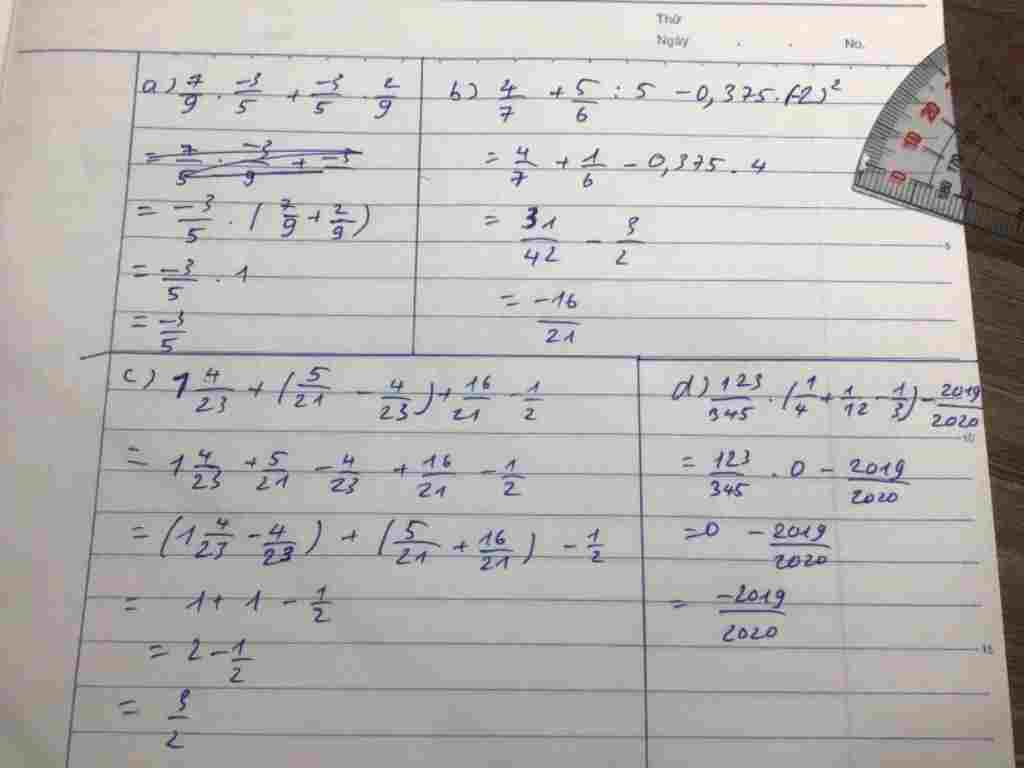 Thứ
Ngày . . No.
a) 7/9 . -3/5 + -3/5 . 2/9
= 7/5 . -3/9 + -3
= -3/5 . ( 7/9 + 2/9 )
= -3/5 . 1
= -3/5
b) 4/7 + 5/6 : 5 - 0,375 . (-2)²
= 4/7 + 1/6 - 0,375 . 4
= 31/42 - 3/2
= -16/21
c) 1 4/23 + ( 5/21 - 4/23 ) + 16/21 - 1/2
= 1 4/23 + 5/21 - 4/23 + 16/21 - 1/2
= ( 1 4/23 - 4/23 ) + ( 5/21 + 16/21 ) - 1/2
= 1 + 1 - 1/2
= 2 - 1/2
= 3/2
d) 123/345 . ( 1/4 + 1/12 - 1/3 ) - 2019/2020
= 123/345 . 0 - 2019/2020
= 0 - 2019/2020
= -2019/2020
5
10
15